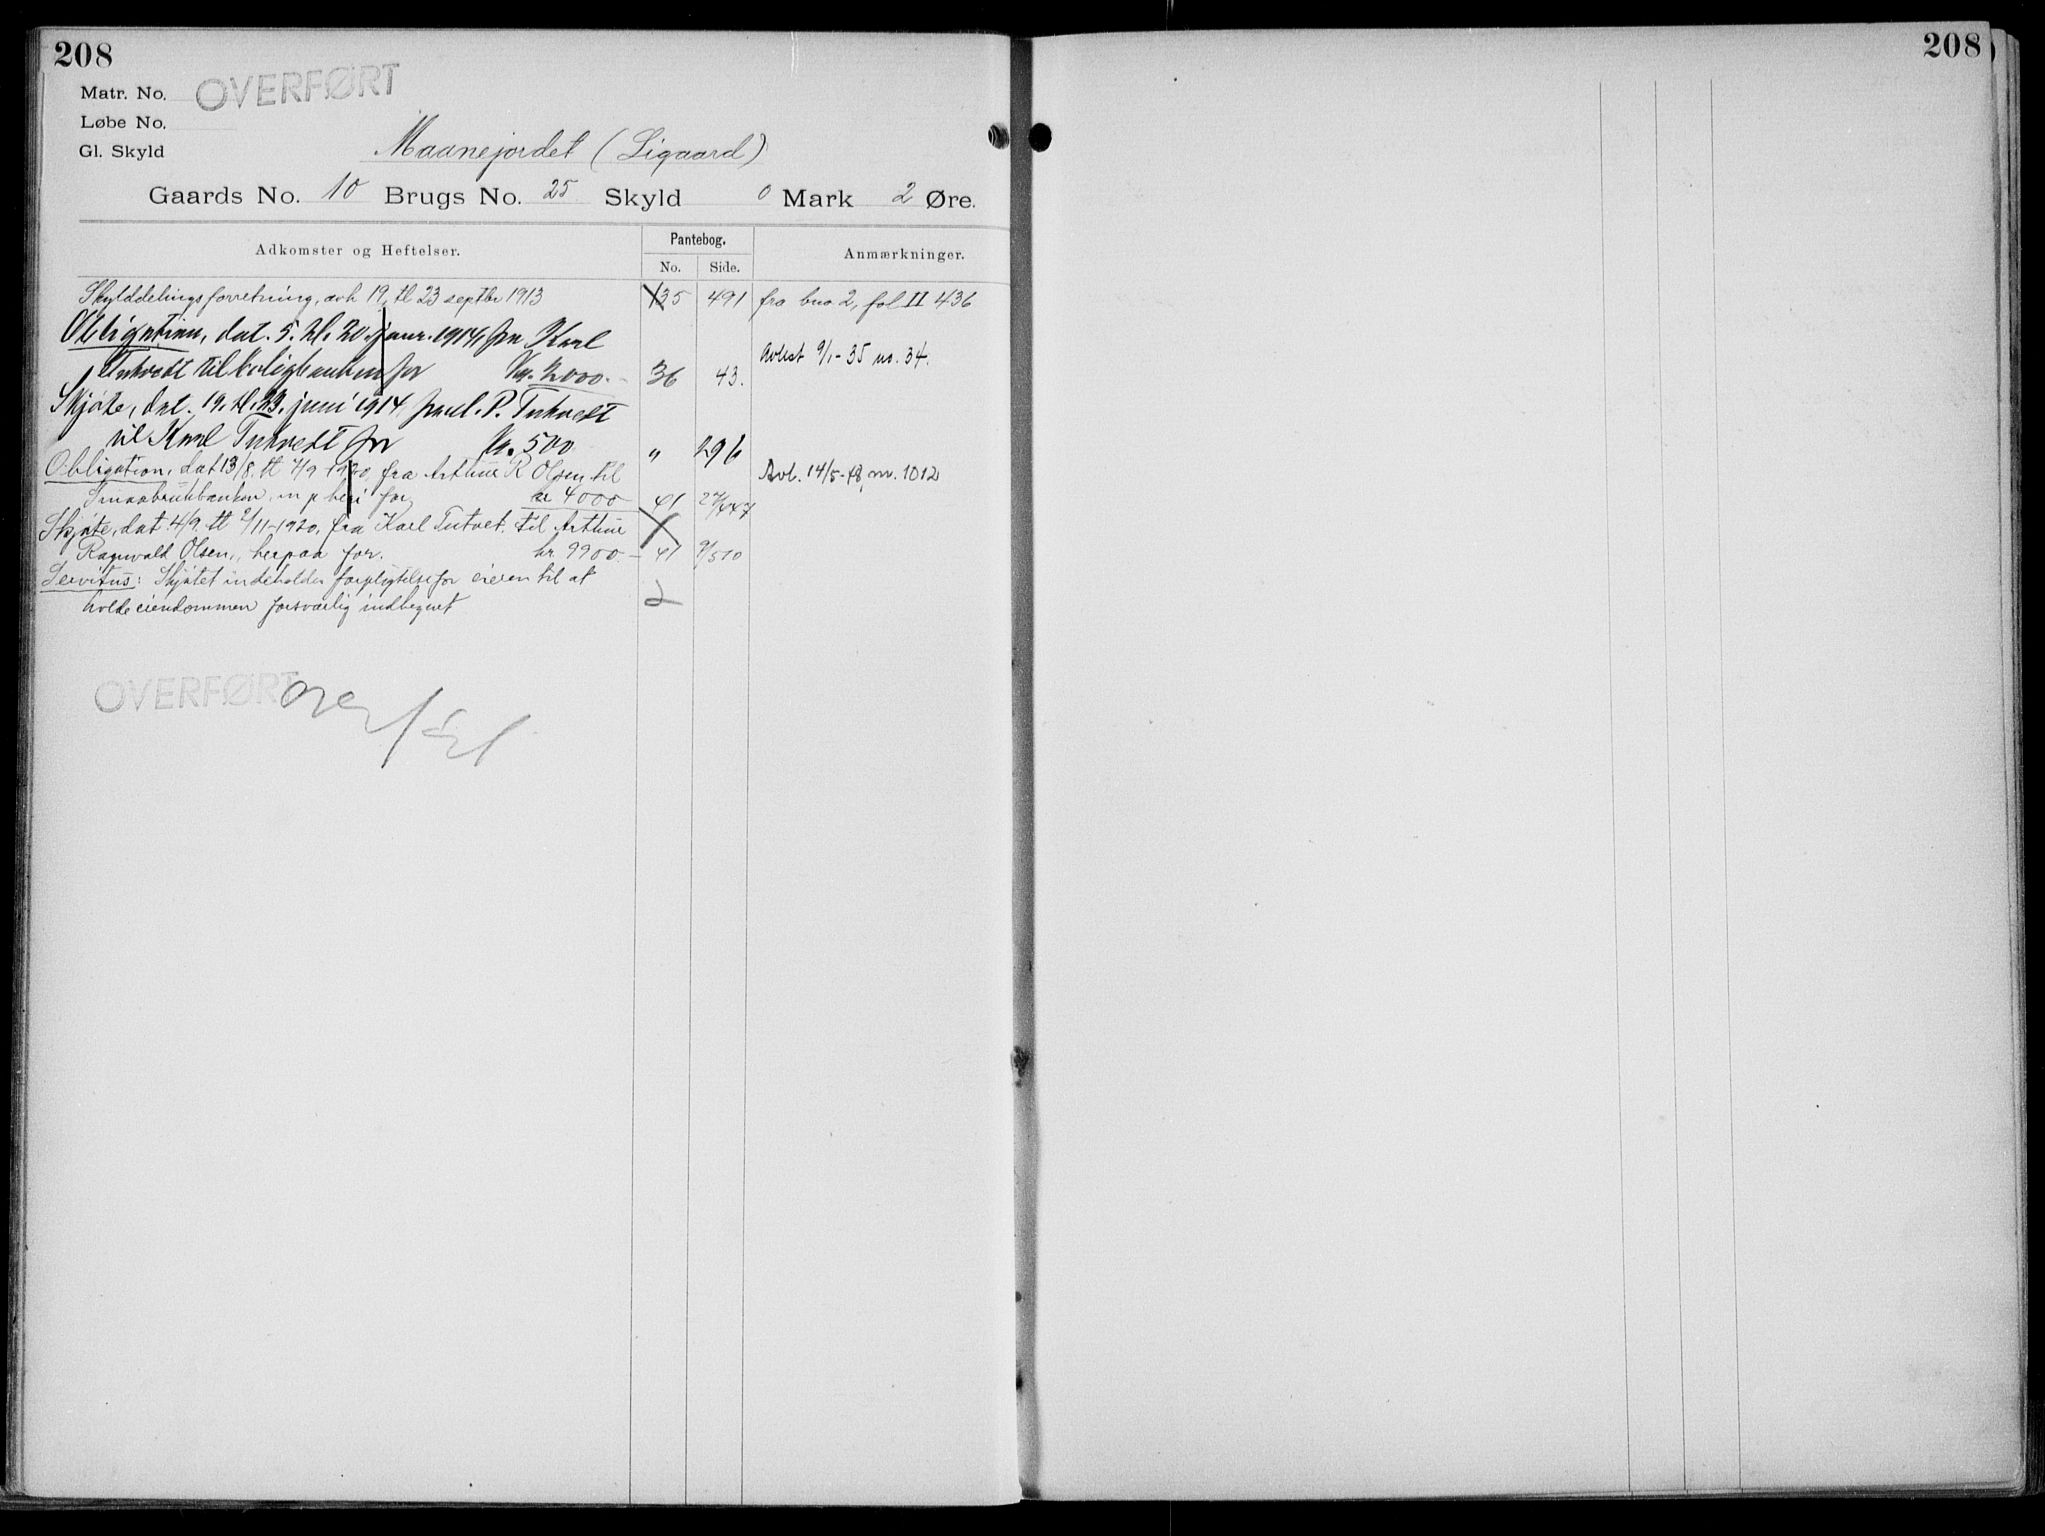 208
208
Matr. No.
OVERFØRT
Løbe No.
Gl. Skyld
Maanejordet (Ligaard)
Gaards No. 10 Brugs No. 25 Skyld 0 Mark 2 Øre.
Adkomster og Heftelser.
Pantebog.
No. Side.
Anmærkninger.
Skylddelingsforretning, avh 19, tl 23 septbr 1913 35 491 fra bno 2, fol II 436
Obligation, dat. 5. tl. 20. januar. 1914, fra Karl
Tutvedt til Boligbanken for Kr. 2000.- 36 43. Avlest 9/1-35 no. 34.
Skjøte, dat. 19. tl. 23. juni 1914 fra P. Tutvedt
til Karl Tutvedt for Kr. 500 " 296
Obligation, dat 13/8. tl 4/9 1920, fra Arthur R Olsen til
Smaabrukbanken, m p for kr 4000 41 27/447 Avl. 14/5- nr. 1012
Skjøte, dat 4/9. tl 2/11-1920, fra Karl Tutvet til Arthur
Ragnvald Olsen, herpaa for. kr. 9900.- 41 9/510
Servitus: Skjøtet indeholder forpligtelse for eieren til at
holde eiendommen forsvarlig indhegnet
2
OVERFØRT
Overført